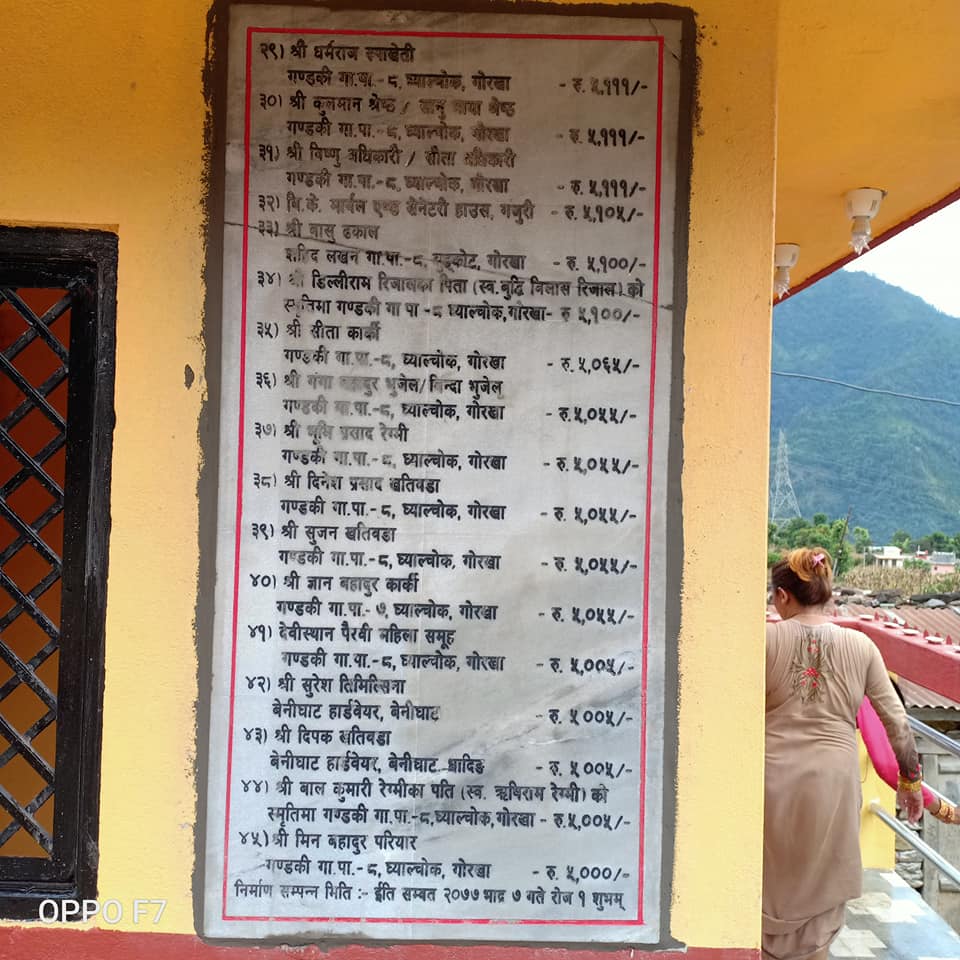 २९) श्री धर्मराज सापकोटा
गण्डकी गा.पा.-८, घ्याल्चोक, गोरखा - रु. ५,१११/-
३०) श्री कुलमान श्रेष्ठ / सानु माया श्रेष्ठ
गण्डकी गा.पा.-८, घ्याल्चोक, गोरखा - रु. ५,१११/-
३१) श्री विष्णु अधिकारी / सीता अधिकारी
गण्डकी गा.पा.-८, घ्याल्चोक, गोरखा - रु. ५,१११/-
३२) बि.के. मार्वल एण्ड सेनेटरी हाउस, गजुरी - रु. ५,१०५/-
३३) श्री वासु ढकाल
शहिद लखन गा.पा.-८, गोरखा - रु. ५,१००/-
३४) श्री डिल्लीराम रिजालका पिता (स्व. बुद्धि विलास रिजाल) को
स्मृतिमा गण्डकी गा पा -८ घ्याल्चोक,गोरखा- रु ५,१००/-
३५) श्री सीता कार्की
गण्डकी गा.पा.-८, घ्याल्चोक, गोरखा - रु. ५,०६५/-
३६) श्री गंगा बहादुर भुजेल/बिन्दा भुजेल
गण्डकी गा.पा.-८, घ्याल्चोक, गोरखा - रु.५,०५५/-
३७) श्री भूमि प्रसाद रेग्मी
गण्डकी गा.पा.-८, घ्याल्चोक, गोरखा - रु. ५,०५५/-
३८) श्री दिनेश प्रसाद खतिवडा
गण्डकी गा.पा.-८, घ्याल्चोक, गोरखा - रु. ५,०५५/-
३९) श्री सुजन खतिवडा
गण्डकी गा.पा.-८, घ्याल्चोक, गोरखा - रु. ५,०५५/-
४०) श्री ज्ञान बहादुर कार्की
गण्डकी गा.पा.- ७, घ्याल्चोक, गोरखा - रु. ५,०५५/-
४१) देवीस्थान पैरवी महिला समूह
गण्डकी गा.पा.-८, घ्याल्चोक, गोरखा - रु. ५,००५/-
४२) श्री सुरेश तिमिल्सिना
बेनीघाट हार्डवेयर, बेनीघाट - रु. ५ ००५/-
४३) श्री दिपक खतिवडा
बेनीघाट हार्डवेयर, बेनीघाट धादिङ - रु. ५ ००५/-
४४) श्री बाल कुमारी रेग्मीका पति (स्व. ऋषिराम रेग्मी) को
स्मृतिमा गण्डकी गा.पा.-८,घ्याल्चोक,गोरखा - रु.५,००५/-
४५) श्री मिन बहादुर परियार
गण्डकी गा.पा.-८, घ्याल्चोक, गोरखा - रु. ५,०००/-
निर्माण सम्पन्न मिति :- ईति सम्बत २०७७ भाद्र ७ गते रोज १ शुभम्
OPPO F7